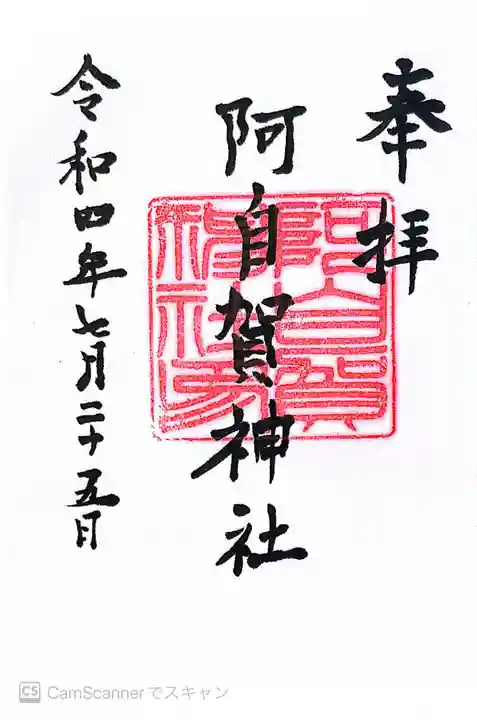 奉拝
阿自賀神社
令和四年七月二十五日
CS CamScannerでスキャン